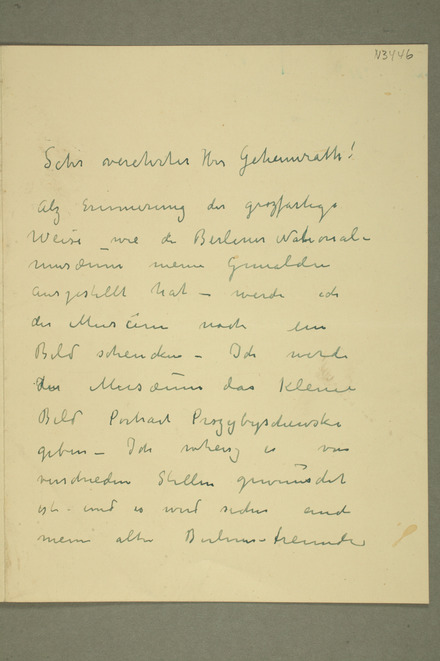 N3446
Sehr verehrter Herr Geheimrath!
Alz Erinnerung der grozfartige
Weise – wie die Berliner National-
musæum meine Gemälde
ausgestellt hat – werde ich
der Musæum noch ein
Bild schenken – Ich werde
der Musæum das kleine
Bild Portrait Przybyschewski
geben – Ich es von
verschieden Stellen gewünscht
ist – und es wird sicher auch
meine alte Berliner-freunde